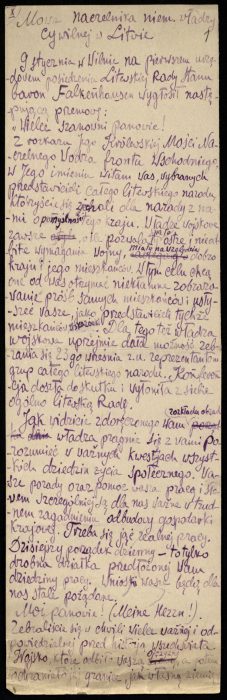 Mowa naczelnika niem. władzy
cywilnej o Litwie 1
9 stycznia w Wilnie na pierwszem urzę-
dowem posiedzeniu Litewskiej Rady Stanu
bawon Falkenhausen wygłosił nastę-
pującą przemowę:
"Wielce szanowni panowie!
Z rozkazu Jego Królewskiej Mości Na-
czelnego Wodza frontu Wschodniego
w Jego imieniu witam Was, wybranych
przedstawicieli całego litewskiego narodu,
którzyście się zebrali dla narady z na-
mi o pomyślności tego kraju. Władze wojskowe
zawsze, o ile pozwalają ostre i nieod-
bite wymagania wojny, miały na względzie dobro
kraju i jego mieszkańców. W tym celu chcą
one od was otrzymać niekłamne zobrazo-
wanie próśb samych mieszkańców i usły-
szeć wasze, jako przedstawicieli tychże
mieszkańców, Dla tego też władza
wojskowa uprzejmie dała możność zeb-
rania się 23-go września z. u. reprezentantom
grup całego litewskiego narodu. Konferen-
cja doszła do skutku i wyłoniła z siebie
ogólno litewską Radę.
Jak widzicie z doręczonego Wam rozkładu obrad
władza pragnie się z wami po-
rozumieć w ważnych kwestjach wszyst-
kich dziedzin życia społecznego. Wa-
sze porady oraz pomoc wasza pracą i sło-
wem szczególniej są dla nas ważne w trud-
nem zagadnieniu odbudowy gospodarki
krajowej. Trzeba się jąć realnej pracy.
Dzisiejszy porządek dzienny – to tylko
drobna cząstka przedłożonej Wam
dziedziny pracy. Wnioski wasze będą dla
nas stale pożądane.
Moi panowie! (Meine Herrn!).
Zebraliście się w chwili wielce ważnej i od-
powiedzialnej przed
Wojsko, które odbił
granice jak własną ziemię